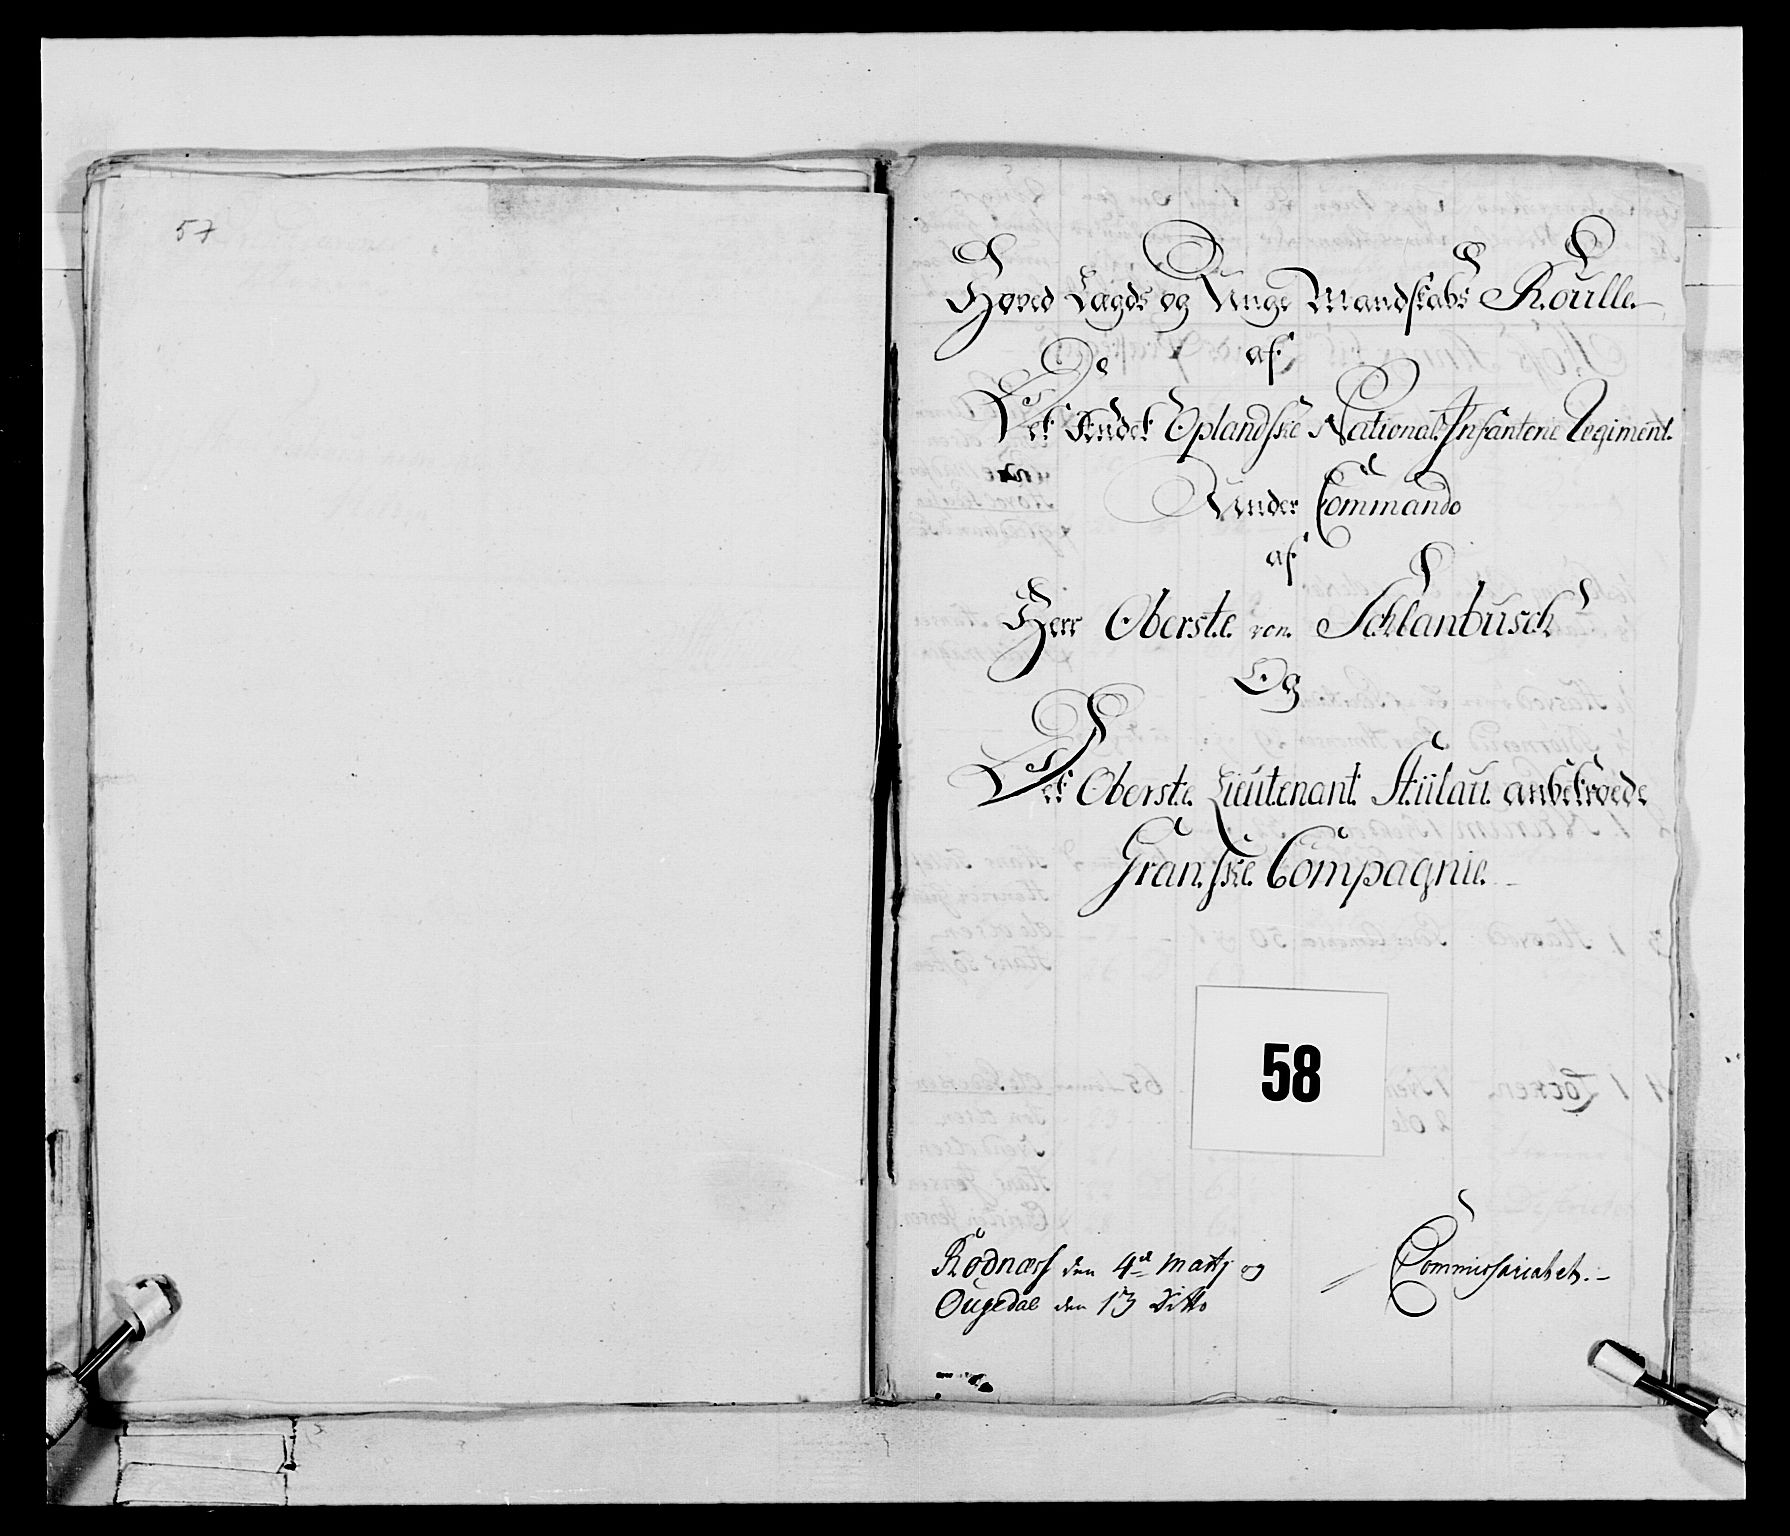 57
Hoved Lægds og Unge Mandskabs Roulle
af
Det Andet Oplandske National Infanterie Regiment
Under Commando
af
Herr Oberste von Schlanbusch
Og
Det Oberste Lieutenant Stülau anbetroede
Granske Compagnie.
58
Rodnæss den 4de Martj og
Ougedal den 13 Ditto
Commissariatet.